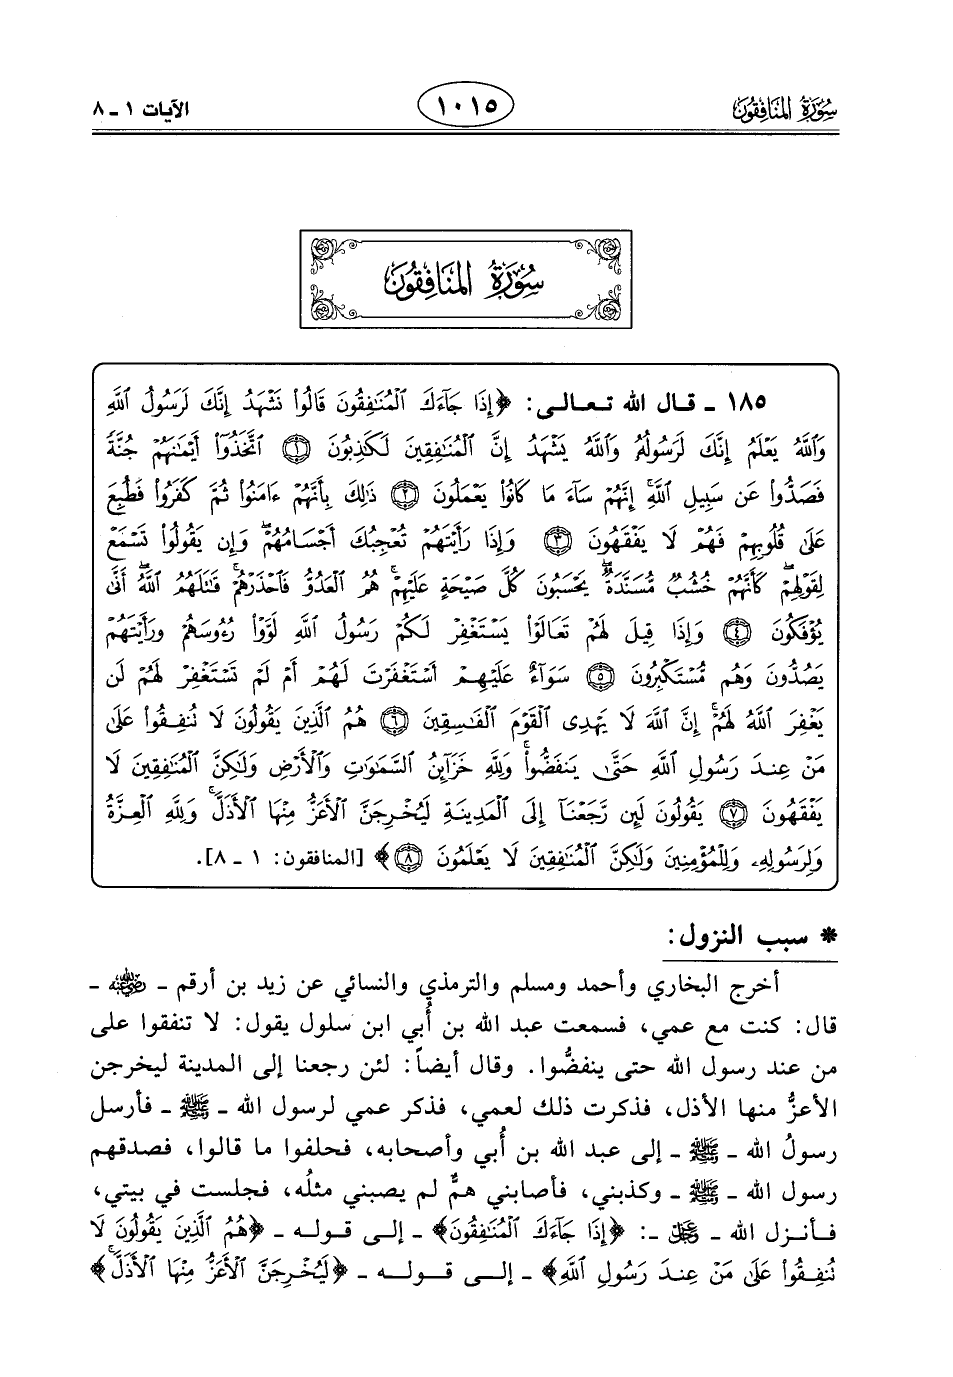 سورة المنافقون ١٠١٥ الآيات ١ - ٨
سُورَةُ المنَافِقُون
١٨٥ - قال الله تعالى: ﴿إِذَا جَآءَكَ ٱلْمُنَٰفِقُونَ قَالُوا۟ نَشْهَدُ إِنَّكَ لَرَسُولُ ٱللَّهِ
وَٱللَّهُ يَعْلَمُ إِنَّكَ لَرَسُولُهُۥ وَٱللَّهُ يَشْهَدُ إِنَّ ٱلْمُنَٰفِقِينَ لَكَٰذِبُونَ ١ ٱتَّخَذُوٓا۟ أَيْمَٰنَهُمْ جُنَّةً
فَصَدُّوا۟ عَن سَبِيلِ ٱللَّهِ ۚ إِنَّهُمْ سَآءَ مَا كَانُوا۟ يَعْمَلُونَ ٢ ذَٰلِكَ بِأَنَّهُمْ ءَامَنُوا۟ ثُمَّ كَفَرُوا۟ فَطُبِعَ
عَلَىٰ قُلُوبِهِمْ فَهُمْ لَا يَفْقَهُونَ ٣ وَإِذَا رَأَيْتَهُمْ تُعْجِبُكَ أَجْسَامُهُمْ ۖ وَإِن يَقُولُوا۟ تَسْمَعْ
لِقَوْلِهِمْ ۖ كَأَنَّهُمْ خُشُبٌ مُّسَنَّدَةٌ ۖ يَحْسَبُونَ كُلَّ صَيْحَةٍ عَلَيْهِمْ ۚ هُمُ ٱلْعَدُوُّ فَٱحْذَرْهُمْ ۚ قَٰتَلَهُمُ ٱللَّهُ ۖ أَنَّىٰ
يُؤْفَكُونَ ٤ وَإِذَا قِيلَ لَهُمْ تَعَالَوْا۟ يَسْتَغْفِرْ لَكُمْ رَسُولُ ٱللَّهِ لَوَّوْا۟ رُءُوسَهُمْ وَرَأَيْتَهُمْ
يَصُدُّونَ وَهُم مُّسْتَكْبِرُونَ ٥ سَوَآءٌ عَلَيْهِمْ أَسْتَغْفَرْتَ لَهُمْ أَمْ لَمْ تَسْتَغْفِرْ لَهُمْ لَن
يَغْفِرَ ٱللَّهُ لَهُمْ ۚ إِنَّ ٱللَّهَ لَا يَهْدِى ٱلْقَوْمَ ٱلْفَٰسِقِينَ ٦ هُمُ ٱلَّذِينَ يَقُولُونَ لَا تُنفِقُوا۟ عَلَىٰ
مَنْ عِندَ رَسُولِ ٱللَّهِ حَتَّىٰ يَنفَضُّوا۟ ۗ وَلِلَّهِ خَزَآئِنُ ٱلسَّمَٰوَٰتِ وَٱلْأَرْضِ وَلَٰكِنَّ ٱلْمُنَٰفِقِينَ لَا
يَفْقَهُونَ ٧ يَقُولُونَ لَئِن رَّجَعْنَآ إِلَى ٱلْمَدِينَةِ لَيُخْرِجَنَّ ٱلْأَعَزُّ مِنْهَا ٱلْأَذَلَّ ۚ وَلِلَّهِ ٱلْعِزَّةُ
وَلِرَسُولِهِۦ وَلِلْمُؤْمِنِينَ وَلَٰكِنَّ ٱلْمُنَٰفِقِينَ لَا يَعْلَمُونَ ٨﴾ [المنافقون: ١ - ٨].
* سبب النزول:
أخرج البخاري وأحمد ومسلم والترمذي والنسائي عن زيد بن أرقم - رضي الله عنه -
قال: كنت مع عمي، فسمعت عبد الله بن أُبي ابن سلول يقول: لا تنفقوا على
من عند رسول الله حتى ينفضُّوا. وقال أيضاً: لئن رجعنا إلى المدينة ليخرجن
الأعزُّ منها الأذل، فذكرت ذلك لعمي، فذكر عمي لرسول الله - ﷺ - فأرسل
رسولُ الله - ﷺ - إلى عبد الله بن أُبي وأصحابه، فحلفوا ما قالوا، فصدقهم
رسول الله - ﷺ - وكذبني، فأصابني همٌّ لم يصبني مثلُه، فجلست في بيتي،
فأنزل الله - ﷻ -: ﴿إِذَا جَآءَكَ ٱلْمُنَٰفِقُونَ﴾ - إلى قوله - ﴿هُمُ ٱلَّذِينَ يَقُولُونَ لَا
تُنفِقُوا۟ عَلَىٰ مَنْ عِندَ رَسُولِ ٱللَّهِ﴾ - إلى قوله - ﴿لَيُخْرِجَنَّ ٱلْأَعَزُّ مِنْهَا ٱلْأَذَلَّ ۚ﴾